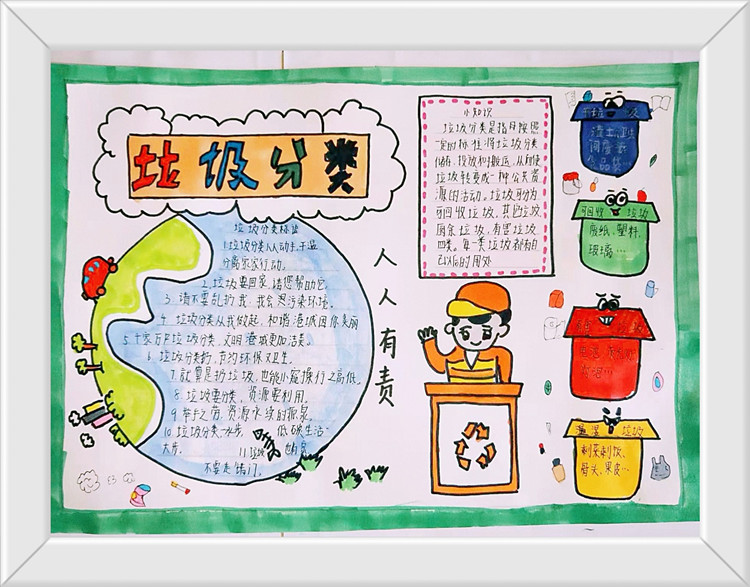 垃圾分类
垃圾分类标语
1.垃圾分类人人动手,干湿
分离依家行动。
2.垃圾要回家,请您帮助它
3.请不要乱扔我,我会是污染环境。
4.垃圾分类从我做起,和谐港城因你美丽
5.千家万户垃圾分,文明港城更加洁美。
6.垃圾分类好,节约环保又卫生。
7.就算是扔垃圾,也能小窥操行之高低。
8.垃圾要分类,资源要利用。
9.举手之劳,资源永续的源泉。
10.垃圾分类
低碳生活
大步。
11.垃圾
不要走错门。
人人有责
小知识
垃圾分类是指按照
定的标准将垃圾分类
储存、投放和搬运,从而使
垃圾转变成一种公共资
源的活动。垃圾可分为
可回收垃圾、其他垃圾
厨余垃圾、有害垃圾
四类。每一类垃圾都有自
己应有的用处
渣土、卫生
间废纸
可回收 垃圾
废纸、塑料、
玻璃…
垃圾
剩菜剩饭、
骨头、果皮…